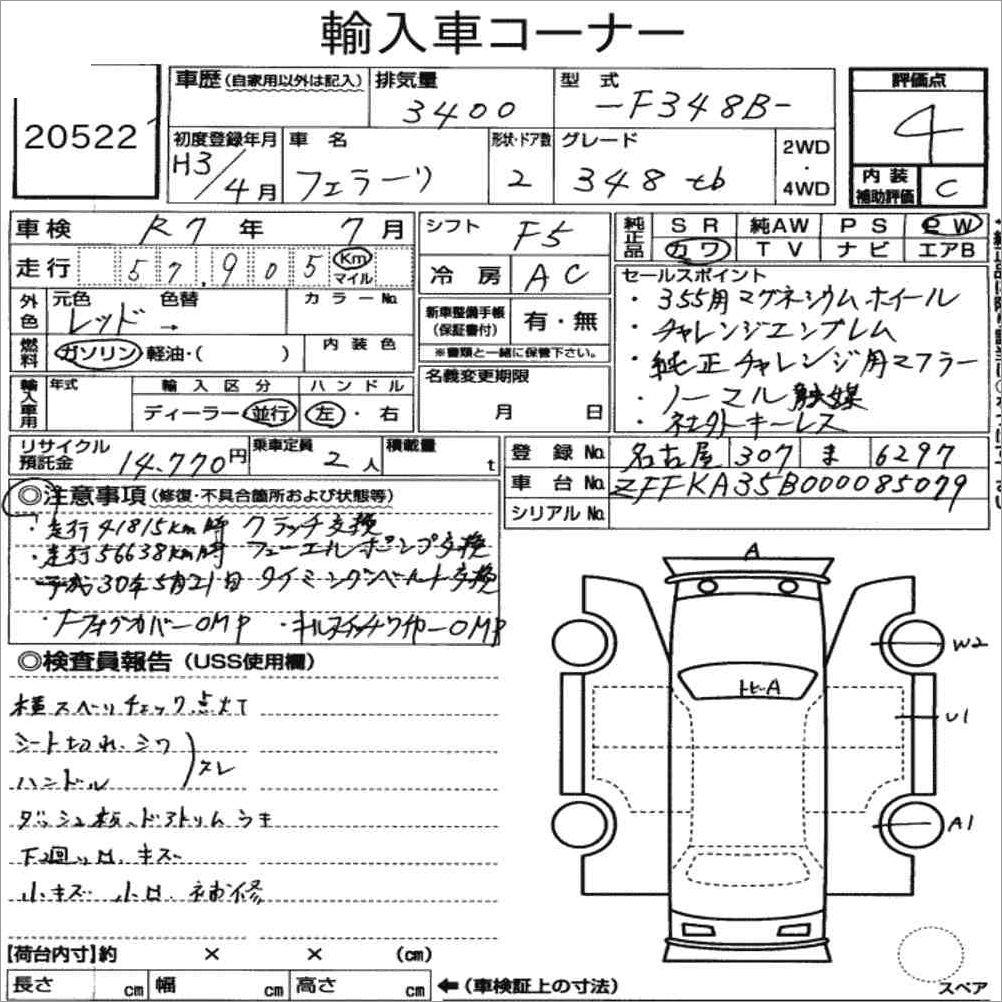 輸入車コーナー
20522
車歴(自家用以外は記入) 排気量 3400 型式 -F348B-
評価点 4
初度登録年月 H3/4月 車名 フェラーリ 形状・ドア数 2 グレード 348 tb 2WD・4WD
内装補助評価 C
車検 R7年 7月 シフト F5
純正品 SR 純AW PS PW
カワ TV ナビ エアB
走行 57,905 Km マイル
冷房 AC
セールスポイント
・355用マグネシウムホイール
・チャレンジエンブレム
・純正チャレンジ用マフラー
・ノーマル触媒
・社外キーレス
外色 元色 レッド 色替 → カラーNo.
新車整備手帳(保証書付) 有・無
※書類と一緒に保管下さい。
燃料 ガソリン 軽油・( ) 内装色
名義変更期限 月 日
輸入車用 年式 輸入区分 ディーラー・並行 ハンドル 左・右
リサイクル預託金 14,770円 乗車定員 2人 積載量 t
登録No. 名古屋 307 ま 6297
車台No. ZFFKA35B000085079
シリアルNo.
◎注意事項(修復・不具合箇所および状態等)
・走行41815km時 クラッチ交換
・走行56638km時 フューエルポンプ交換
平成30年5月21日 タイミングベルト交換
◎検査員報告(USS使用欄)
横スベリチェック点灯
シート切れ、シワ
ハンドル スレ
ダッシュ板、ドアトリムウキ
下回り凹、キズ
小キズ 小凹、補修
A
トビーA
W2
U1
A1
【荷台内寸】約 × × (cm)
長さ cm 幅 cm 高さ cm ←(車検証上の寸法)
スペア